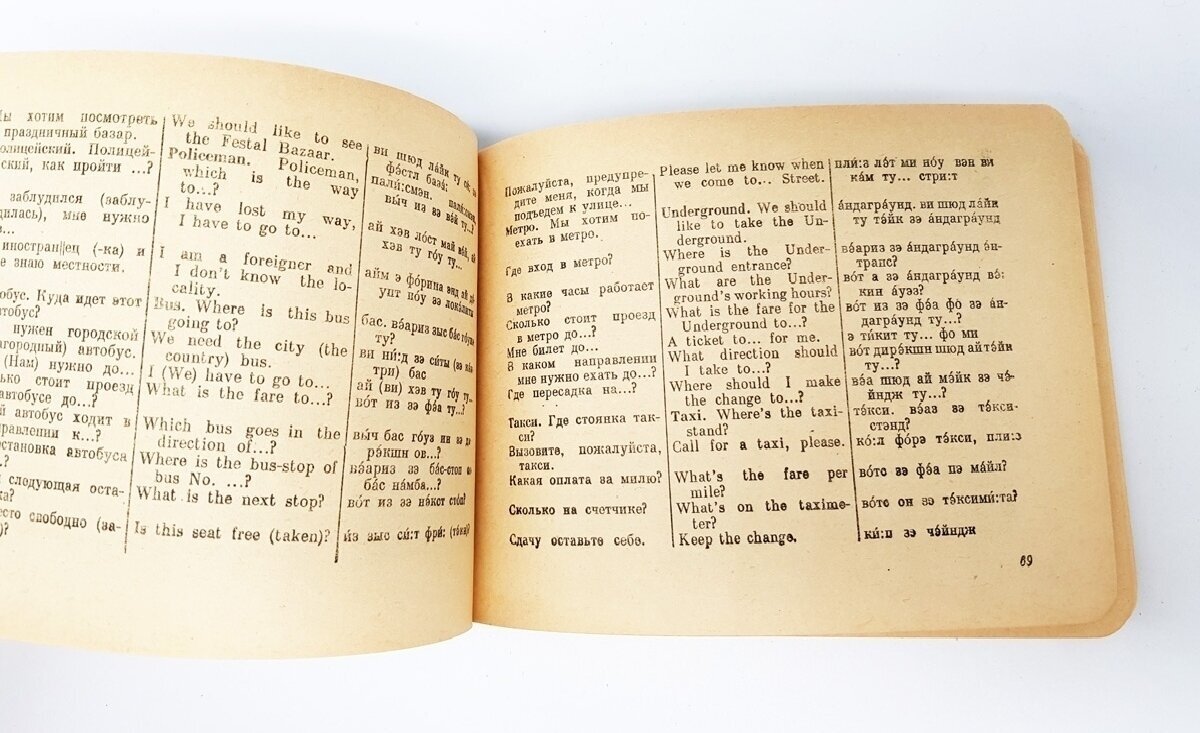 ы хотим посмотреть
праздничный базар.
олицейский. Полицей-
ский, как пройти ...?
заблудился (заблу-
дилась), мне нужно
в...
иностран||ец (-ка) и
е знаю местности.
обус. Куда идет этот
втобус?
нужен городской
агородный) автобус.
(Нам) нужно до...
ько стоит проезд
автобусе до...?
й автобус ходит в
правлении к...?
остановка автобуса
...?
следующая оста-
ка?
есто свободно (за-
)?
We should like to see
the Festal Bazaar.
Policeman, Policeman,
which is the way
to...?
I have lost my way,
I have to go to...
I am a foreigner and
I don't know the lo-
cality.
Bus. Where is this bus
going to?
We need the city (the
country) bus.
I (We) have to go to...
What is the fare to...?
Which bus goes in the
direction of...?
Where is the bus-stop of
bus No. ...?
What is the next stop?
Is this seat free (taken)?
ви шюд ла́йк ту си́
фэ́стл база́:
пали́:смэн.
вы́ч из вэ вэ́й ту...?
ай хэв ло́ст май вэ́й, ай
хэв ту го́у ту...
айм э фо́рина энд ай
ноу зэ
бас. вэ́ариз зыс ба́с го́уин
ту?
ви ни́:д зэ си́ты (зэ ка́н
три) бас
ай (ви) хэв ту го́у ту...
во́т из зэ фэ́а ту...?
вы́ч бас го́уз ин зэ ди
рэ́кшн ов...?
вэ́ариз зэ ба́с-стоп ов
ба́с на́мба...?
во́т из зэ нэ́кст сто́п?
и́з зыс си́:т фри́: (тэ́кн)?
Пожалуйста, предупре-
дите меня, когда мы
подъедем к улице...
Метро. Мы хотим по-
ехать в метро.
Где вход в метро?
В какие часы работает
метро?
Сколько стоит проезд
в метро до...?
Мне билет до...
В каком направлении
мне нужно ехать до...?
Где пересадка на...?
Такси. Где стоянка так-
си?
Вызовите, пожалуйста,
такси.
Какая оплата за милю?
Сколько на счетчике?
Сдачу оставьте себе.
Please let me know when
we come to... Street.
Underground. We should
like to take the Un-
derground.
Where is the Under-
ground entrance?
What are the Under-
ground's working hours?
What is the fare for the
Underground to...?
A ticket to... for me.
What direction should
I take to...?
Where should I make
the change to...?
Taxi. Where's the taxi-
stand?
Call for a taxi, please.
What's the fare per
mile?
What's on the taxime-
ter?
Keep the change.
пли́:з лэ́т ми но́у вэн ви
ка́м ту... стри:т
а́ндагра́унд. ви шюд ла́йк
ту тэ́йк зэ а́ндагра́унд
вэ́ариз зэ а́ндагра́унд э́н-
транс?
во́т а зэ а́ндагра́унд вэ́:
кин а́уэз?
во́т из зэ фэ́а фо зэ а́н-
дагра́унд ту...?
э ти́кит ту... фо ми
во́т дирэ́кшн шюд айтэ́йк
ту...?
вэ́а шюд ай мэ́йк зэ чэ́-
йндж ту...?
тэ́кси. вэ́аз зэ тэ́кси-
стэнд?
ко́:л фо́рэ тэ́кси, пли́:з
во́тс зэ фэ́а пэ ма́йл?
во́тс он зэ тэ́ксими́:та?
ки́:п зэ чэ́йндж
69